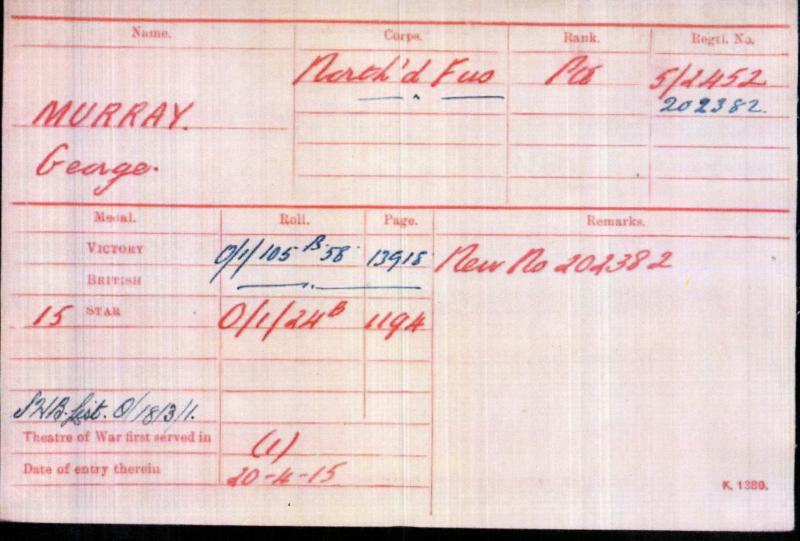 Name. Corps. Rank. Regtl. No.
North'd Fus Pte 5/2452
202382.
MURRAY.
George.
Medal. Roll. Page. Remarks.
VICTORY O/1/105 B 58 13918 New No 202382
BRITISH
15 STAR O/1/24B 1194
SWB. List. O/18/3/1.
Theatre of War first served in (1)
Date of entry therein 20-4-15
K. 1380.